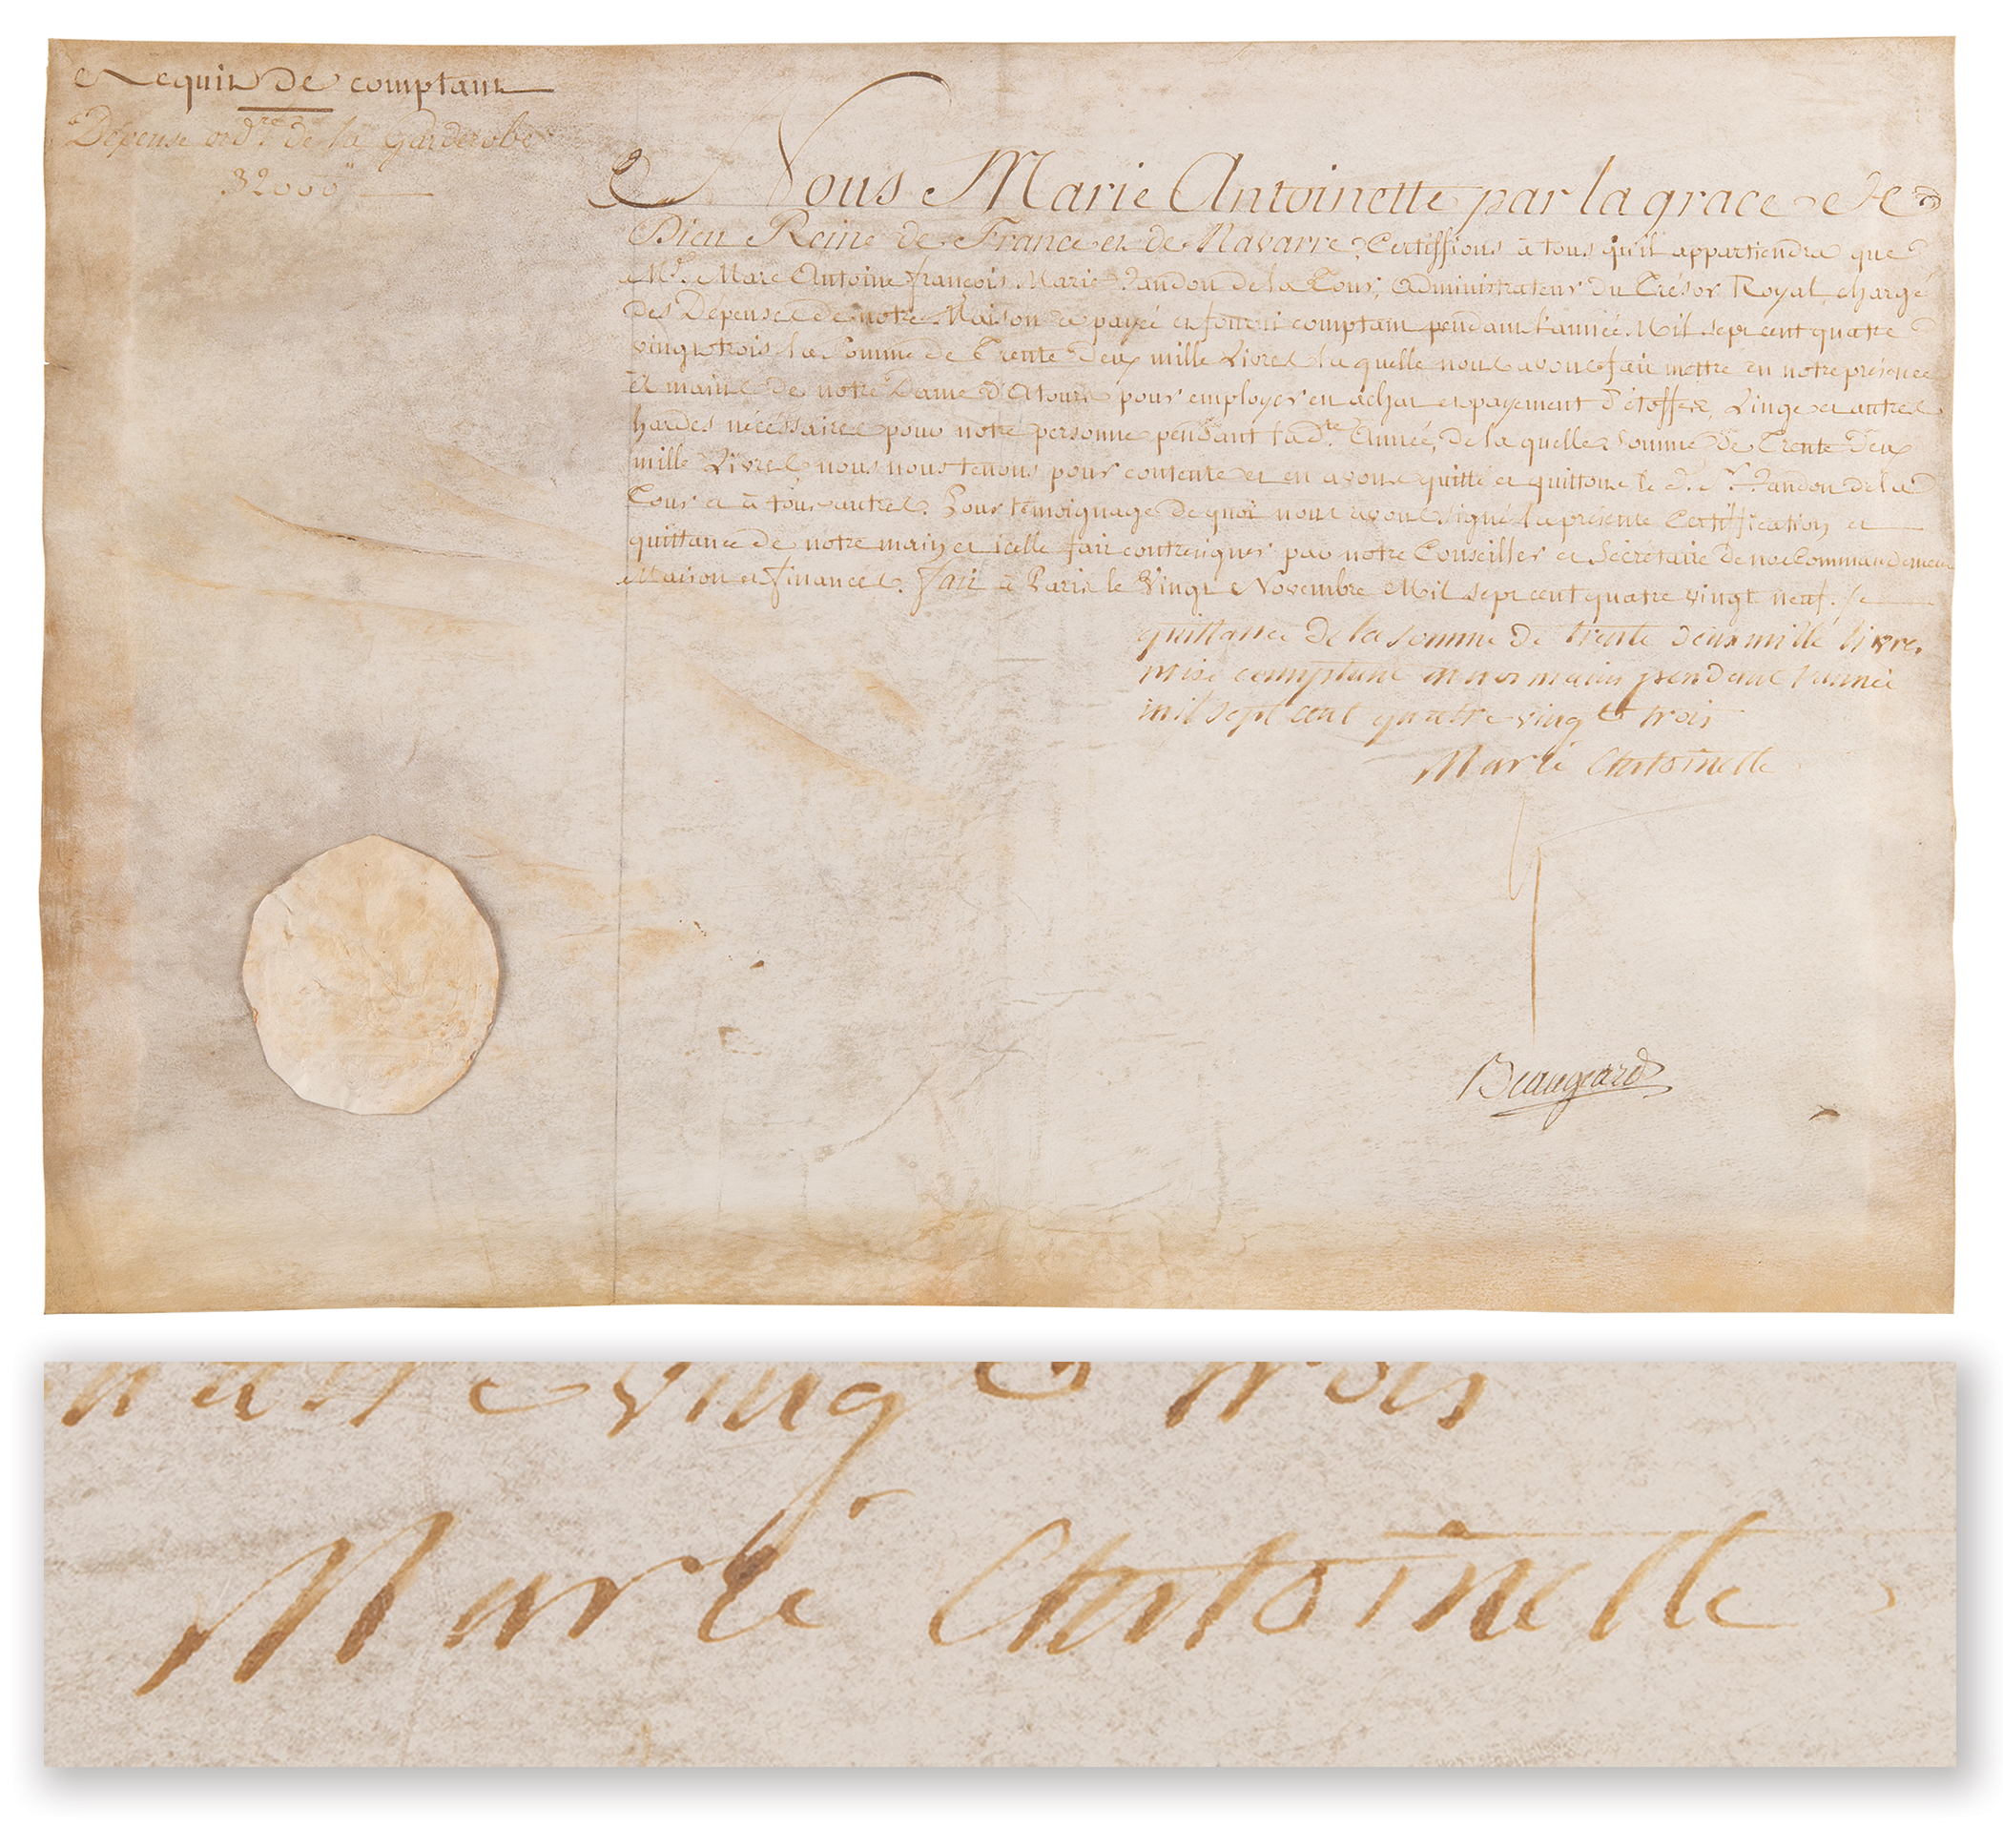 Acquit de comptant
Dépense ord.re de la Garderobe
32000ᵗᵗ
Nous Marie Antoinette par la grace de
Dieu Reine de France et de Navarre, Certiffions à tous qu'il appartiendra que
M.r Marc Antoine françois Marie Randon de la Tour, Administrateur du Trésor Royal, chargé
des Dépenses de notre Maison a payé et fourni comptant pendant l'année Mil sept cent quatre
vingt trois la Somme de Trente Deux mille Livres laquelle nous avons fait mettre en notre présence
ès mains de notre Dame d'Atours pour employer en achat et payement d'étoffes, Linge et autres
hardes nécéssaires pour notre personne pendant lad.te Année, de laquelle Somme de Trente Deux
mille Livres nous nous tenons pour contente et en avons quitté et quittons le d. S.r Randon de la
Tour et à tous autres. Pour témoignage de quoi nous avons signé la présente Certiffication et
quittance de notre main et icelle fait contresigner par notre Conseiller et Sécrétaire de nos Commandemens
Maison et finances. fait à Paris le Vingt Novembre Mil sept cent quatre vingt neuf.
quittance de la somme de trente deux mille livres
mise comptant en nos mains pendant l'année
mil sept cent quatre vingt trois
Marie Antoinette
Beaugeard
vingt trois
Marie Antoinette